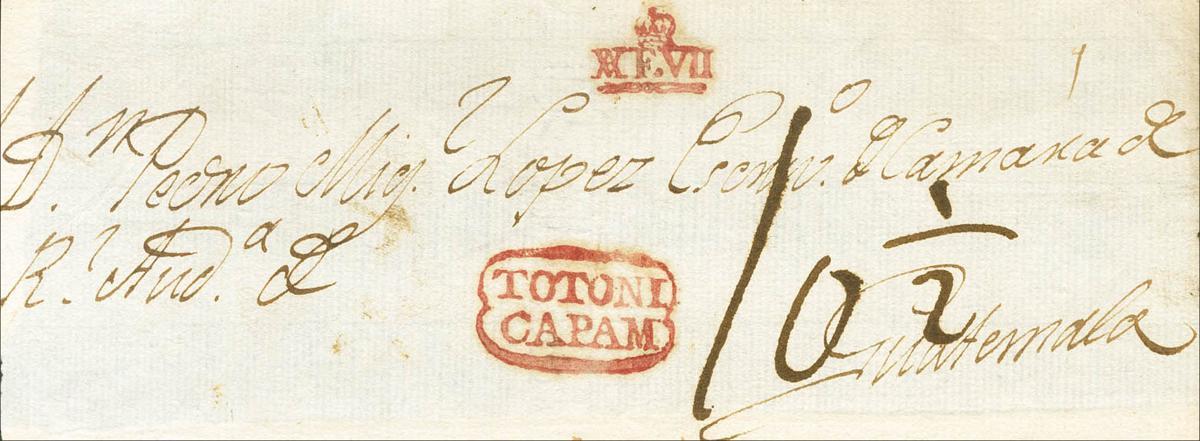 F.VII
A D.ⁿ Pedro Mig.ˡ Lopez Escriv.º d Camara d
R.ˡ Aud.ª d
TOTONI
CAPAM
10 1/2
Guatemala